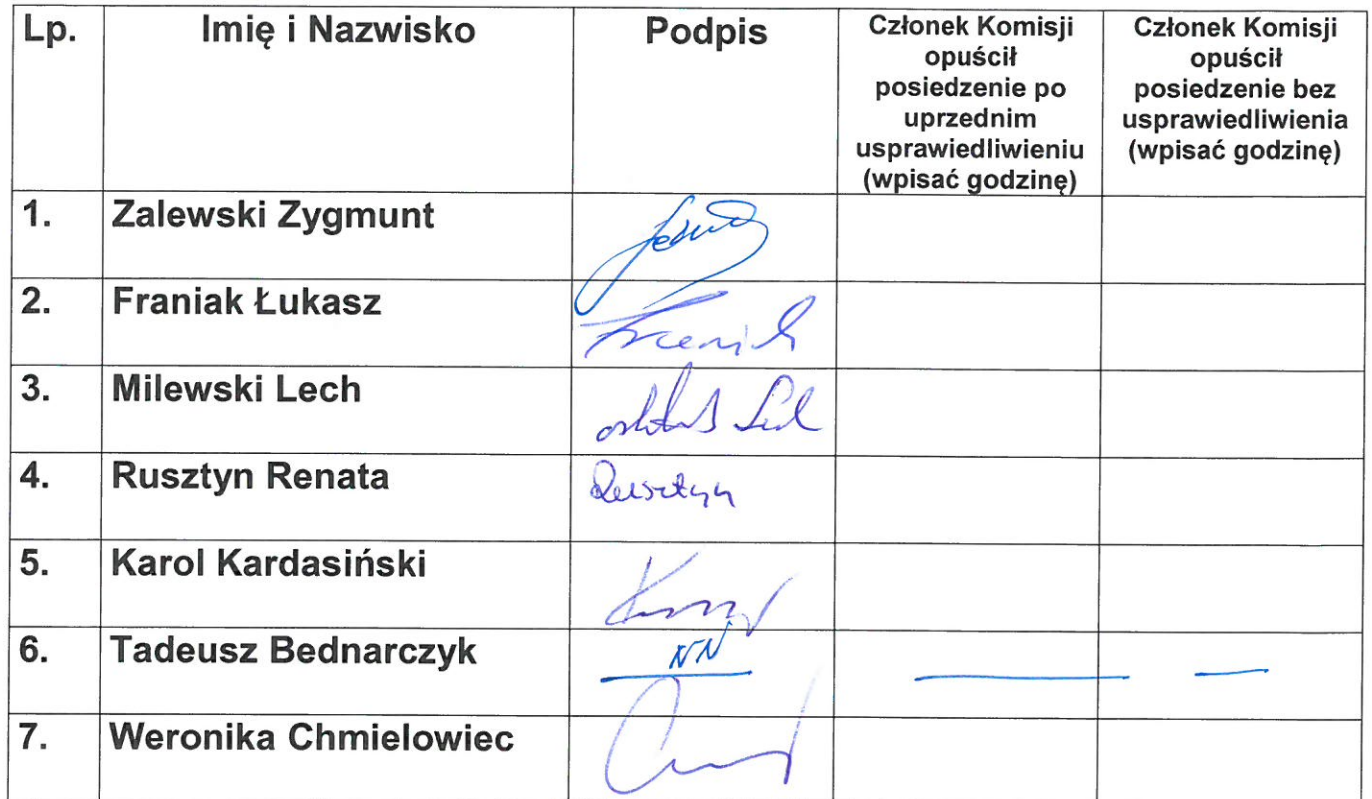 Lp.
Imię i Nazwisko
Podpis
Członek Komisji
opuścił
posiedzenie po
uprzednim
usprawiedliwieniu
(wpisać godzinę)
Członek Komisji
opuścił
posiedzenie bez
usprawiedliwienia
(wpisać godzinę)
1. Zalewski Zygmunt
2. Franiak Łukasz
3. Milewski Lech
4. Rusztyn Renata Rusztyn
5. Karol Kardasiński
6. Tadeusz Bednarczyk NN
7. Weronika Chmielowiec